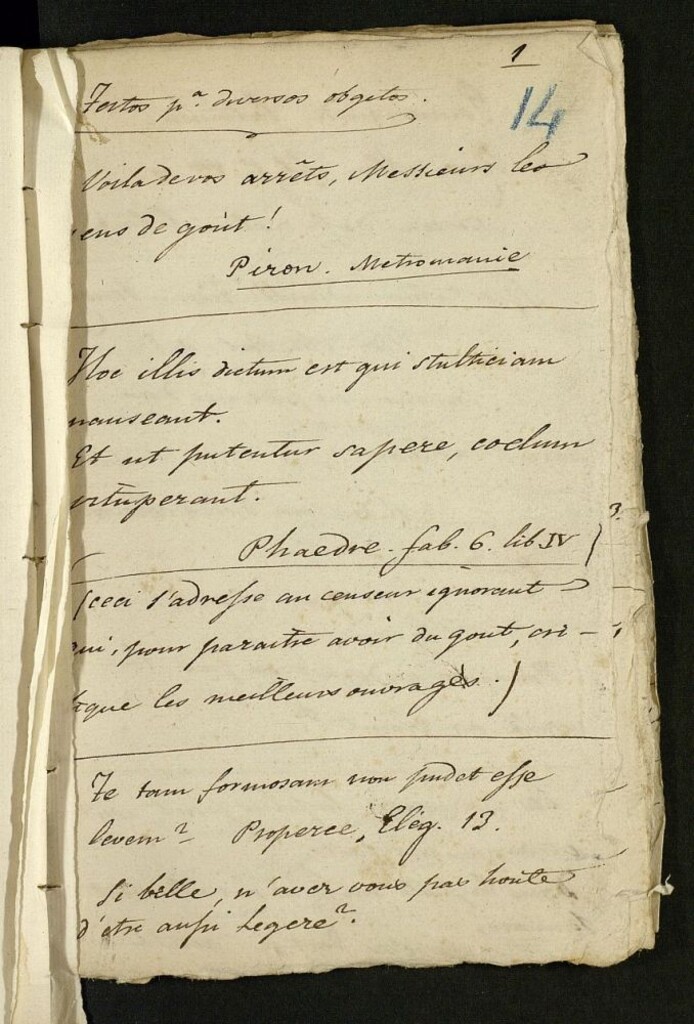 1
14
Textos p.a diversos obgetos.
Voila de vos arrêts, Messieurs les
ens de goût!
Piron. Metromanie
Hoc illis dictum est qui stulticiam
nauseant.
Et ut putentur sapere, coelum
vituperant.
Phaedre. fab. 6. lib. IV
3.
(ceci s'adresse au censeur ignorant
qui, pour paraitre avoir du gout, cri-
tique les meilleurs ouvrages.)
Te tam formosam non pudet esse
levem? Properce, Elég. 13.
Si belle, n'avez vous pas honte
d'etre aussi legere?